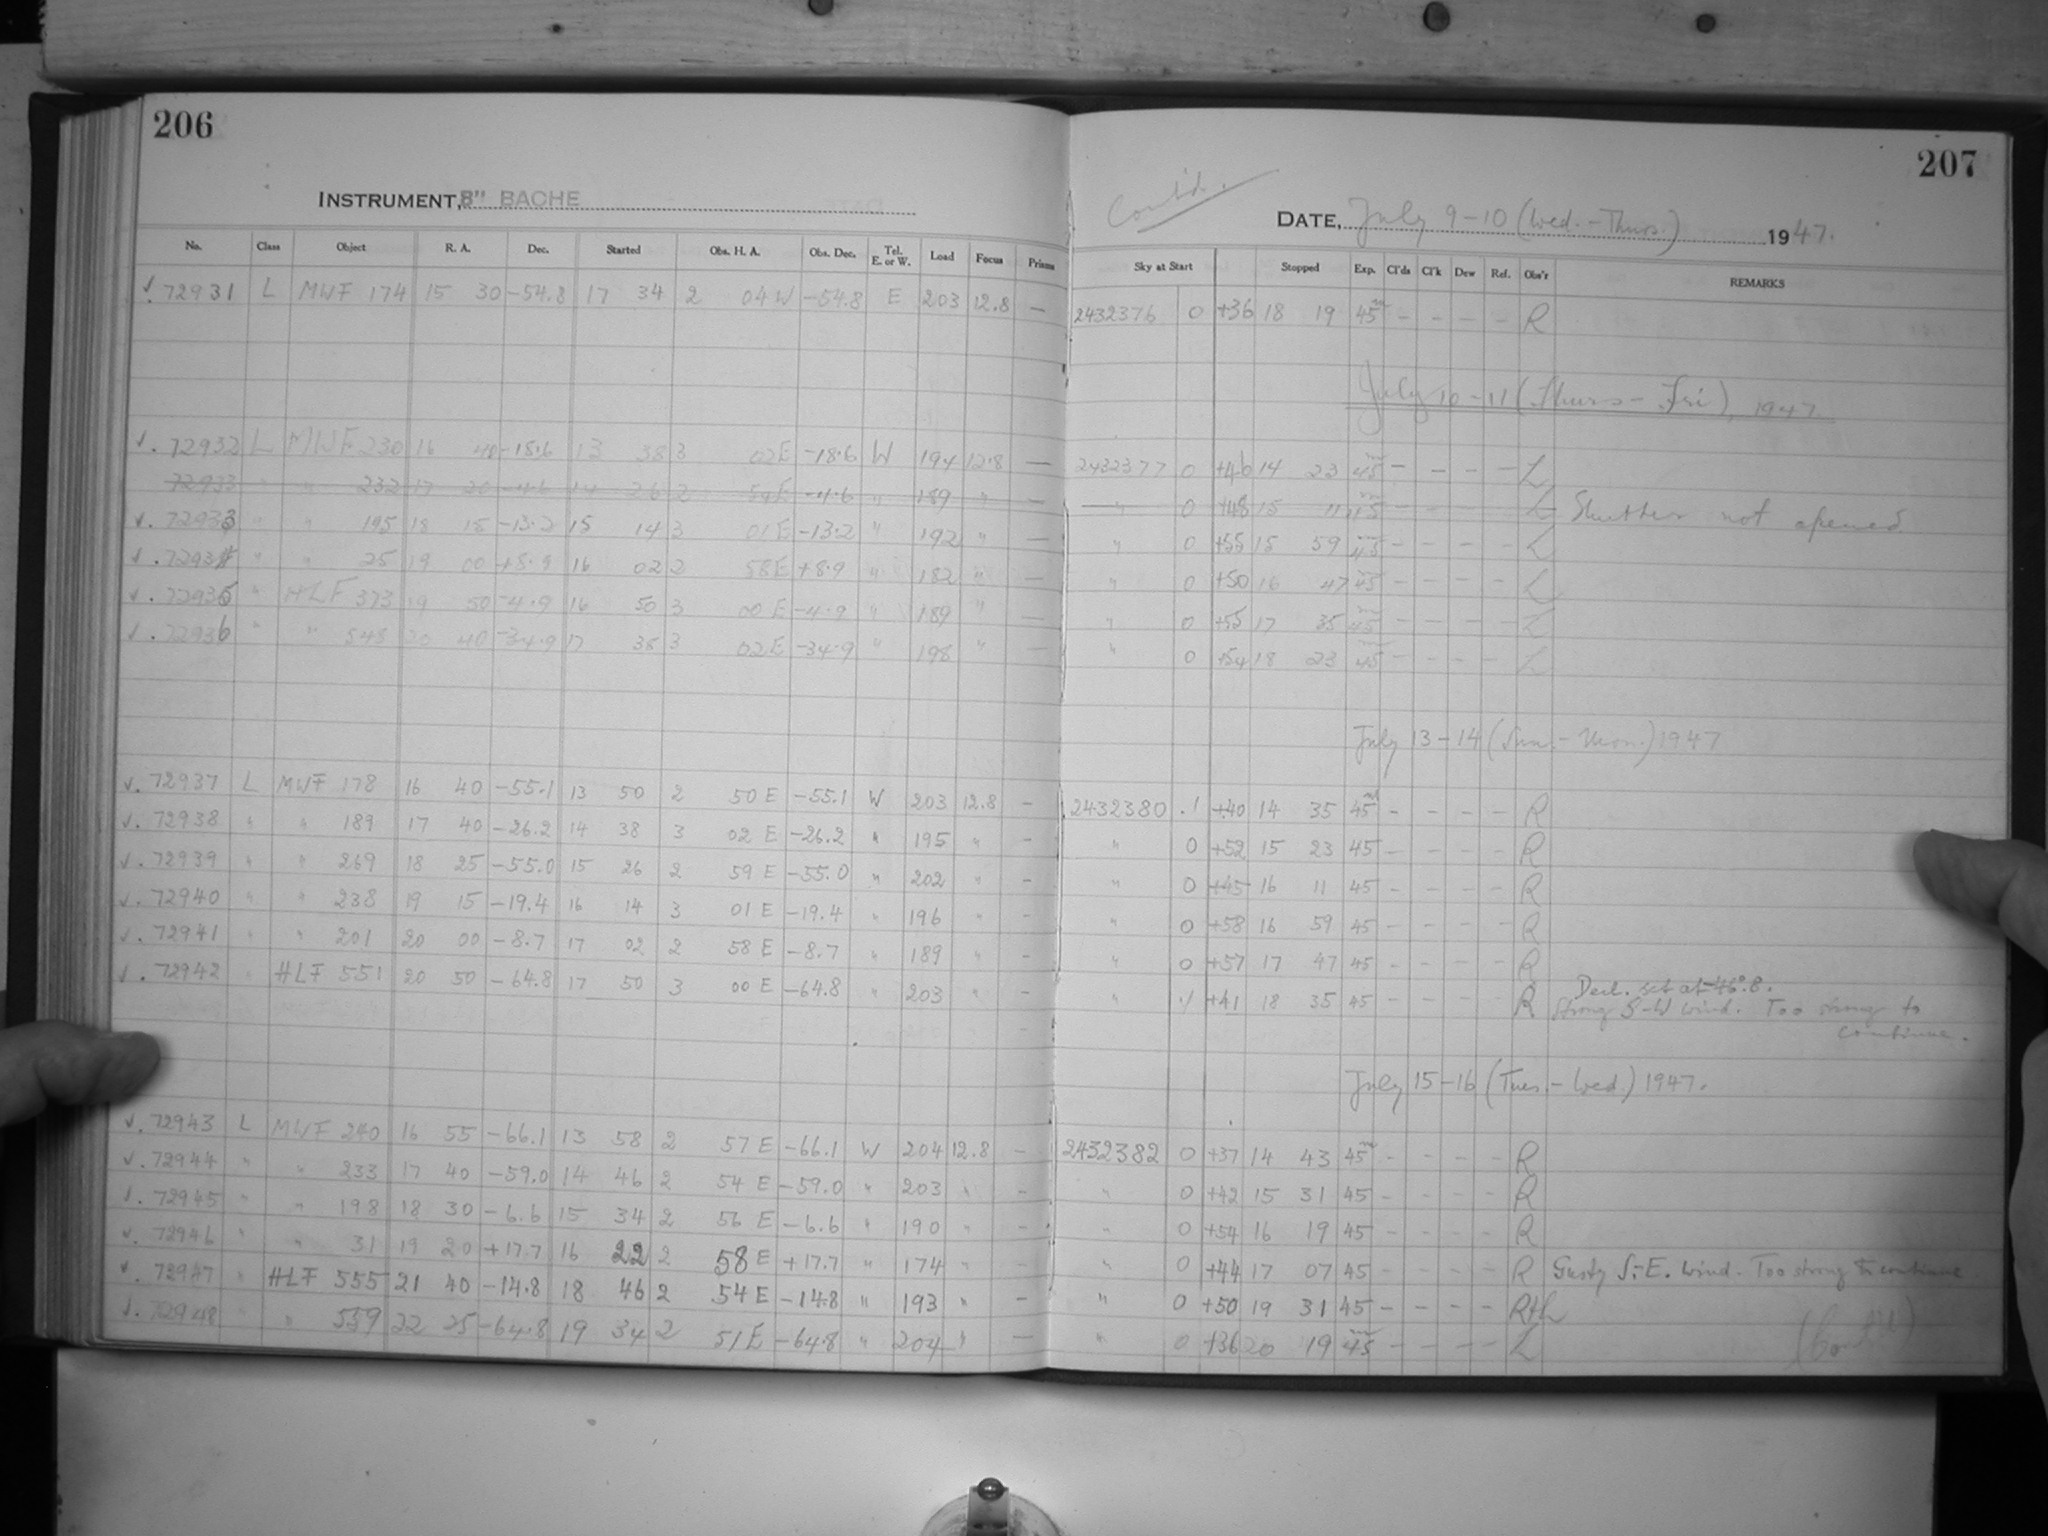 206
INSTRUMENT, 8" BACHE
No. Class Object R. A. Dec. Started Obs. H. A. Obs. Dec. Tel. E. or W. Load Focus Prisms
√. 72931 L MWF 174 15 30 -54.8 17 34 2 04 W -54.8 E 203 12.8 —
√. 72932 L MWF 230 16 40 -18.6 13 38 3 02 E -18.6 W 194 12.8 —
72933 " " 232 17 20 -4.6 14 26 2 54 E -4.6 " 189 " —
√. 72933 " " 195 18 15 -13.2 15 14 3 01 E -13.2 " 192 " —
√. 72934 " " 25 19 00 +8.9 16 02 2 58 E +8.9 " 182 " —
√. 72935 " HLF 373 19 50 -4.9 16 50 3 00 E -4.9 " 189 " —
√. 72936 " " 548 20 40 -34.9 17 38 3 02 E -34.9 " 198 " —
√. 72937 L MWF 178 16 40 -55.1 13 50 2 50 E -55.1 W 203 12.8 -
√. 72938 " " 189 17 40 -26.2 14 38 3 02 E -26.2 " 195 " -
√. 72939 " " 269 18 25 -55.0 15 26 2 59 E -55.0 " 202 " -
√. 72940 " " 238 19 15 -19.4 16 14 3 01 E -19.4 " 196 " -
√. 72941 " " 201 20 00 -8.7 17 02 2 58 E -8.7 " 189 " -
√. 72942 " HLF 551 20 50 -64.8 17 50 3 00 E -64.8 " 203 " -
√. 72943 L MWF 240 16 55 -66.1 13 58 2 57 E -66.1 W 204 12.8 -
√. 72944 " " 233 17 40 -59.0 14 46 2 54 E -59.0 " 203 " -
√. 72945 " " 198 18 30 -6.6 15 34 2 56 E -6.6 " 190 " -
√. 72946 " " 31 19 20 +17.7 16 22 2 58 E +17.7 " 174 " -
√. 72947 " HLF 555 21 40 -14.8 18 46 2 54 E -14.8 " 193 " -
√. 72948 " " 559 22 25 -64.8 19 34 2 51 E -64.8 " 204 " —
207
Cont'd.
DATE, July 9-10 (Wed.-Thurs.) 1947.
Sky at Start Stopped Exp. Cl'ds Cl'k Dew Ref. Obs'r REMARKS
2432376 0 +36 18 19 45m - - - - R
July 10-11 (Thurs-Fri), 1947
2432377 0 +46 14 23 45m - - - - L
" 0 +48 15 11 45m - - - - L Shutter not opened
" 0 +55 15 59 45m - - - - L
" 0 +50 16 47 45m - - - - L
" 0 +55 17 35 45m - - - - L
" 0 +54 18 23 45m - - - - L
July 13-14 (Sun.-Mon.) 1947
2432380 .1 +40 14 35 45m - - - - R
" 0 +52 15 23 45 - - - - R
" 0 +45 16 11 45 - - - - R
" 0 +58 16 59 45 - - - - R
" 0 +57 17 47 45 - - - - R
Decl. set at -46°.8.
" .1 +41 18 35 45 - - - - R Strong S-W wind. Too strong to
continue.
July 15-16 (Tues.-Wed.) 1947.
2432382 0 +37 14 43 45m - - - - R
" 0 +42 15 31 45 - - - - R
" 0 +54 16 19 45 - - - - R
" 0 +44 17 07 45 - - - - R Gusty S.-E. wind. Too strong to continue
" 0 +50 19 31 45 - - - - R+L
" 0 +36 20 19 45m - - - - L (Cont'd)